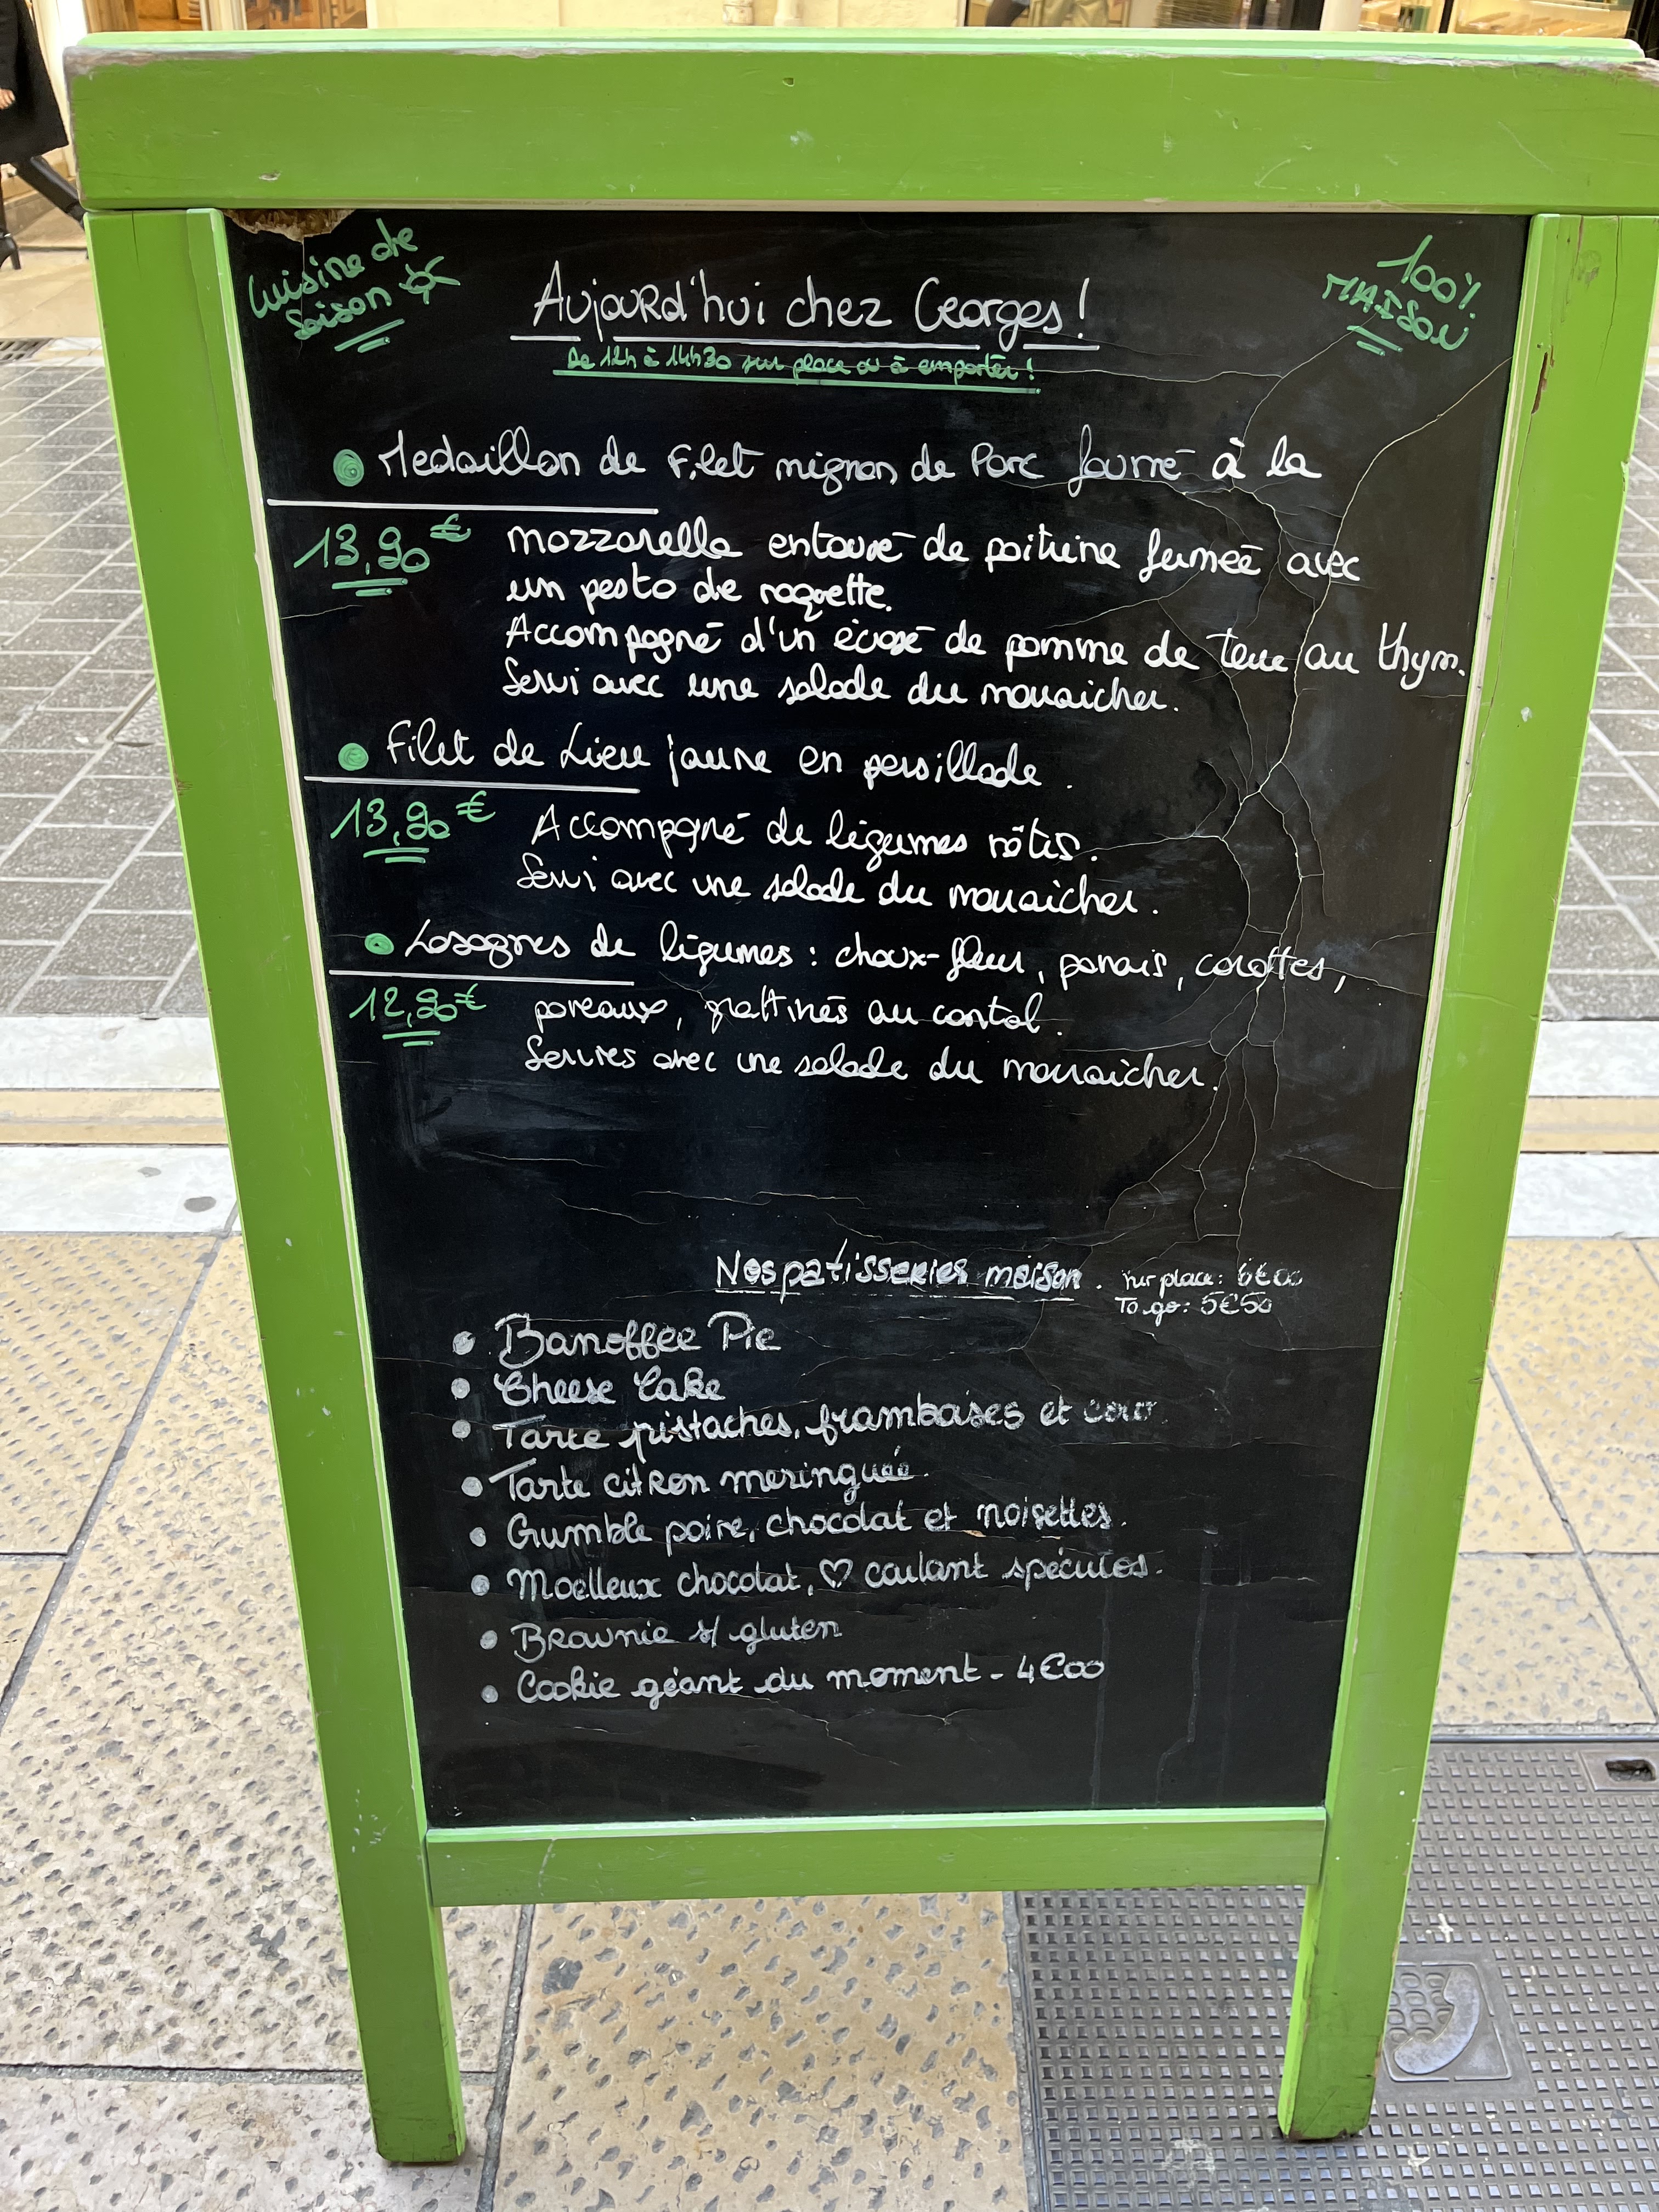 Cuisine de
Saison
100%
MAISON
Aujourd'hui chez Georges!
De 12h à 14h30 sur place ou à emporter !
Medaillon de Filet mignon de Porc fourré à la
13,90€
mozzarella entouré de poitrine fumée avec
un pesto de roquette.
Accompagné d'un écrasé de pomme de terre au thym.
Servi avec une salade du maraicher.
Filet de Lieu jaune en persillade.
13,90€
Accompagné de légumes rôtis.
Servi avec une salade du maraicher.
Lasagnes de légumes : choux-fleur, panais, carottes,
12,90€
poreaux, grattinés au cantal.
Servies avec une salade du maraicher.
Nos patisseries maison. sur place: 6€00
To go: 5€50
Banoffee Pie
Cheese Cake
Tarte pistaches, framboises et
Tarte citron meringuée.
Crumble poire, chocolat et noisettes.
Moelleux chocolat, ♡ coulant spéculos.
Brownie s/ gluten
Cookie géant du moment - 4€00